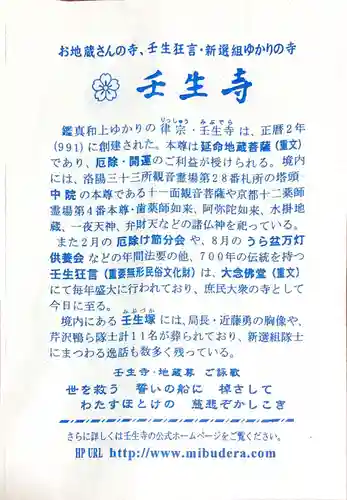 お地蔵さんの寺、壬生狂言・新選組ゆかりの寺
壬生寺
りっしゅう　みぶでら
鑑真和上ゆかりの律宗・壬生寺は、正暦2年
(991)に創建された。本尊は延命地蔵菩薩(重文)
であり、厄除・開運のご利益が授けられる。境内
には、洛陽三十三所観音霊場第28番札所の塔頭
中院の本尊である十一面観音菩薩や京都十二薬師
霊場第4番本尊・歯薬師如来、阿弥陀如来、水掛地
蔵、一夜天神、弁財天などの諸仏神を祀っている。
また2月の厄除け節分会や、8月のうら盆万灯
供養会などの年間法要の他、700年の伝統を持つ
壬生狂言(重要無形民俗文化財)は、大念佛堂(重文)
にて毎年盛大に行われており、庶民大衆の寺として
今日に至る。
みぶづか
境内にある壬生塚には、局長・近藤勇の胸像や、
芹沢鴨ら隊士計11名が葬られており、新選組隊士
にまつわる逸話も数多く残っている。
壬生寺・地蔵尊　ご詠歌
世を救う　誓いの船に　棹さして
わたすほとけの　慈悲ぞかしこき
さらに詳しくは壬生寺の公式ホームページをご覧ください。
HP URL http://www.mibudera.com/